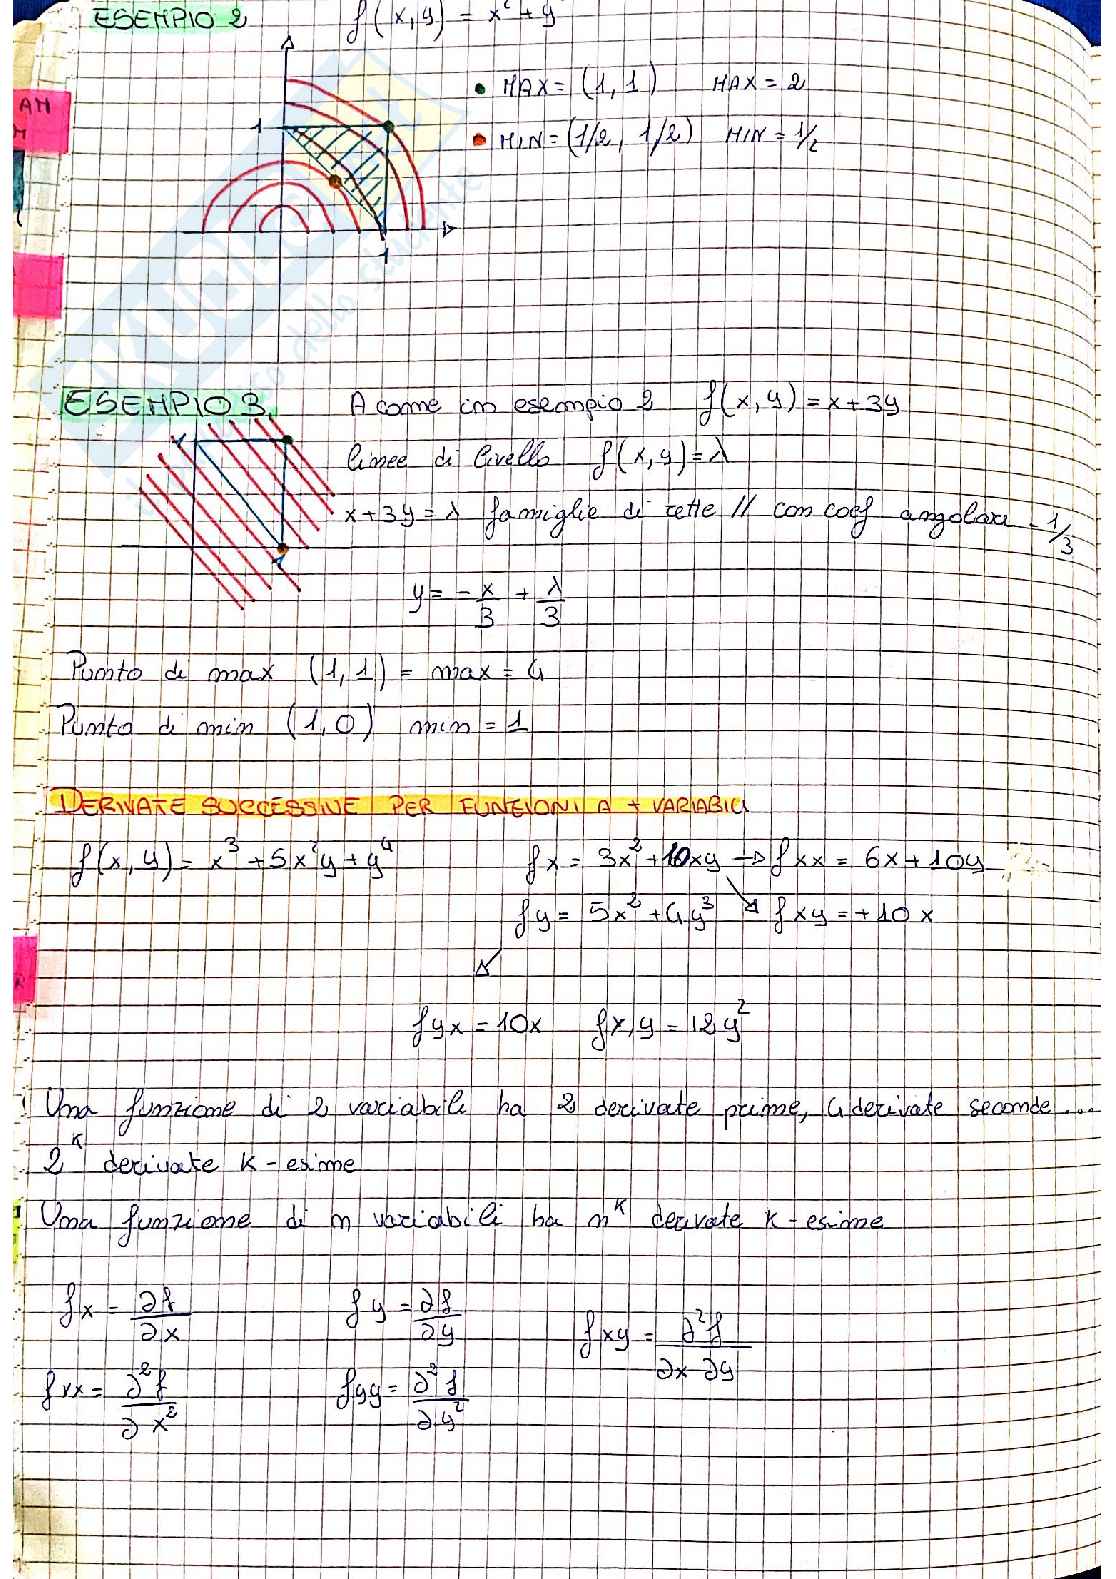 ESEMPIO 2 f(x,y) = x² + y
MAX = (1,1) MAX = 2
MIN = (1/2, 1/2) MIN = 1/2
1
1
ESEMPIO 3 A come in esempio 2 f(x,y) = x+3y
linee di livello f(x,y) = λ
x+3y = λ famiglie di rette // con coef angolare - 1/3
y = - x/3 + λ/3
Punto di max (1,1) = max = 4
Punto di min (1,0) min = 1
DERIVATE SUCCESSIVE PER FUNZIONI A + VARIABILI
f(x,y) = x³ + 5x²y + y⁴ fx = 3x² + 10xy → fxx = 6x + 10y
fy = 5x² + 4y³ fxy = +10x
fyx = 10x fx,y = 12y²
Una funzione di 2 variabili ha 2 derivate prime, 4 derivate seconde ...
2ᴷ derivate K-esime
Una funzione di n variabili ha nᴷ derivate K-esime
fx = ∂f/∂x fy = ∂f/∂y fxy = ∂²f/∂x ∂y
fxx = ∂²f/∂x² fyy = ∂²f/∂y²